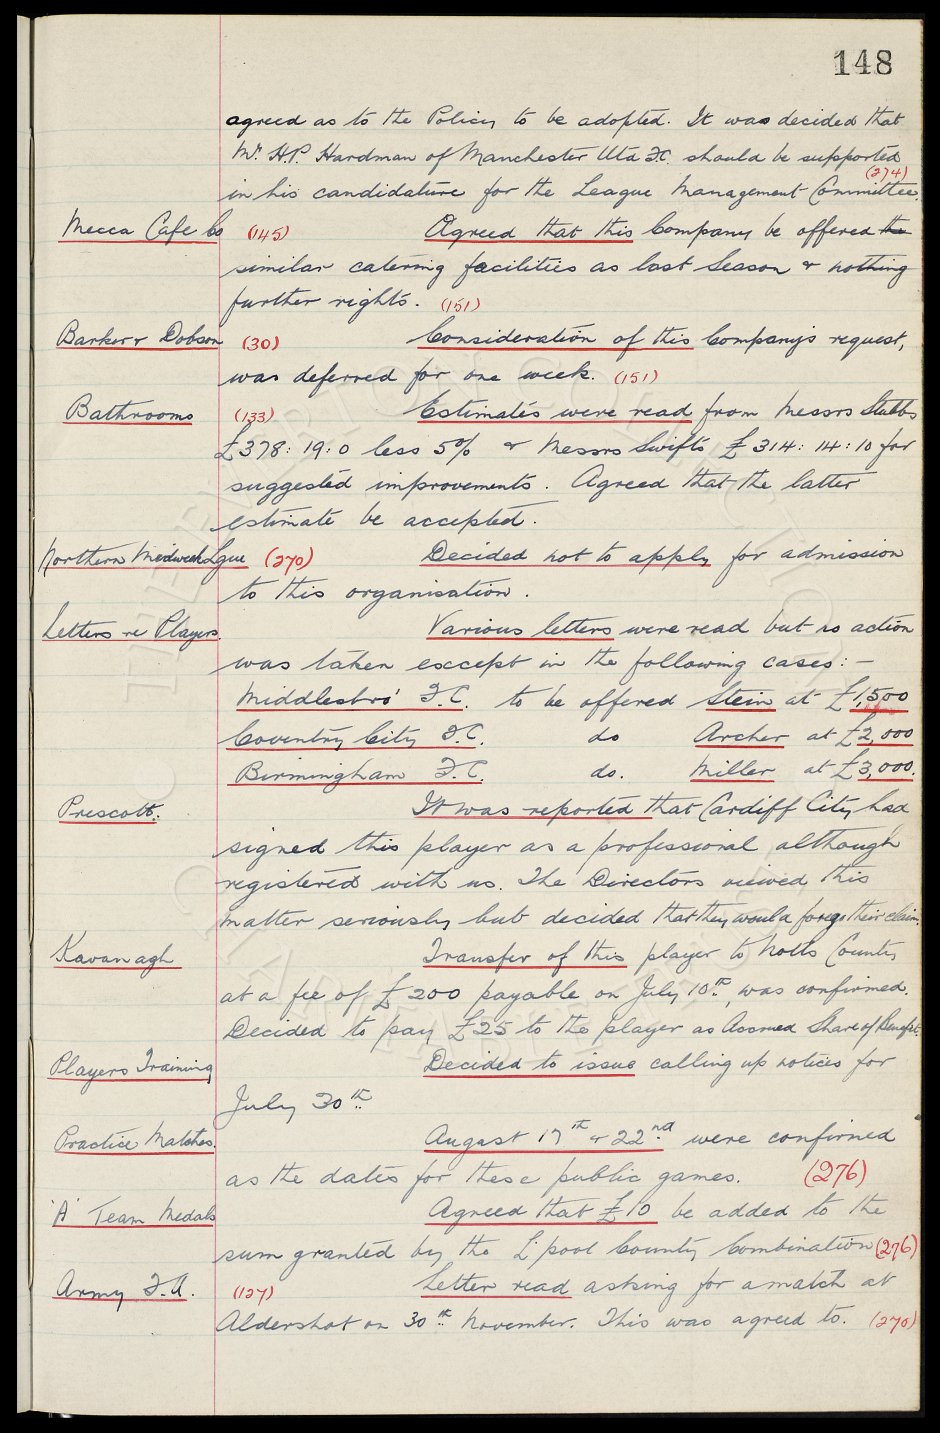 148
agreed as to the Policy to be adopted. It was decided that
Mr. H.P. Hardman of Manchester Utd F.C. should be supported
(274)
in his candidature for the League Management Committee.
Mecca Cafe Co (145) Agreed that this Company be offered the
similar catering facilities as last Season & nothing
further rights. (151)
Barker & Dobson (30) Consideration of this Company's request,
was deferred for one week. (151)
Bathrooms (133) Estimates were read from Messrs Stubbs
£378: 19: 0 less 5% & Messrs Swifts £314: 14: 10 for
suggested improvements. Agreed that the latter
estimate be accepted.
Northern Midweek Lgue (270) Decided not to apply for admission
to this organisation.
Letters re Players. Various letters were read but no action
was taken except in the following cases: -
Middlesbro' F.C. to be offered Stein at £1,500
Coventry City F.C. do Archer at £2,000
Birmingham F.C. do. Miller at £3,000.
Prescott. It was reported that Cardiff City had
signed this player as a professional although
registered with us. The Directors viewed this
matter seriously but decided that they would forego their claim.
Kavanagh Transfer of this player to Notts County
at a fee of £200 payable on July 10th, was confirmed.
Decided to pay £25 to the player as Accrued Share of Benefit.
Players Training Decided to issue calling up notices for
July 30th
Practice Matches. August 17th & 22nd were confirmed
as the dates for these public games. (276)
'A' Team Medals Agreed that £10 be added to the
sum granted by the L'pool County Combination (276)
Army F.A. (127) Letter read asking for a match at
Aldershot on 30th November. This was agreed to. (270)